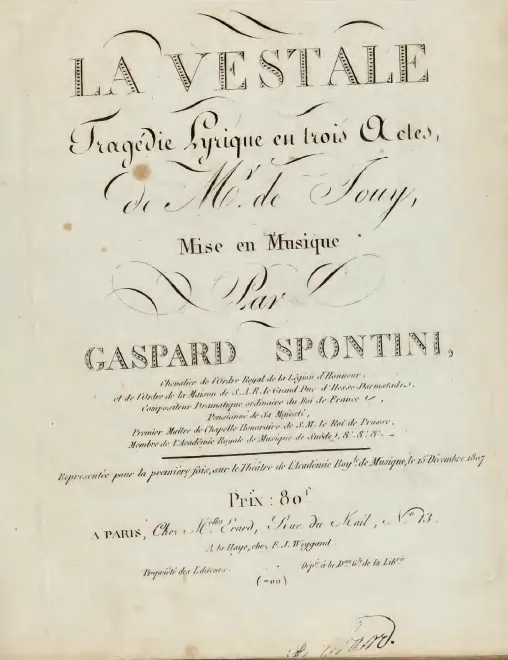 LA VESTALE
Tragédie Lyrique en trois Actes,
de Mr. de Jouy,
Mise en Musique
Par
GASPARD SPONTINI,
Chevalier de l'Ordre Royal de la Légion d'Honneur,
et de l'Ordre de la Maison de S.A.R. le Grand Duc d'Hesse Darmstadt,
Compositeur Dramatique ordinaire du Roi de France
Pensionné de Sa Majesté,
Premier Maître de Chapelle Honoraire de S.M. le Roi de Prusse,
Membre de l'Académie Royale de Musique de Suède, &c. &c. &c.
Représentée pour la première fois, sur le Théâtre de l'Académie Roy.le de Musique, le 15 Décembre 1807
Prix : 80f
A PARIS, Chez M.elles Erard, Rue du Mail, No. 13.
A la Haye, chez F. J. Weygand.
Propriété des Editeurs. Dép. à la D.on G.le de la Lib.rie
(700)